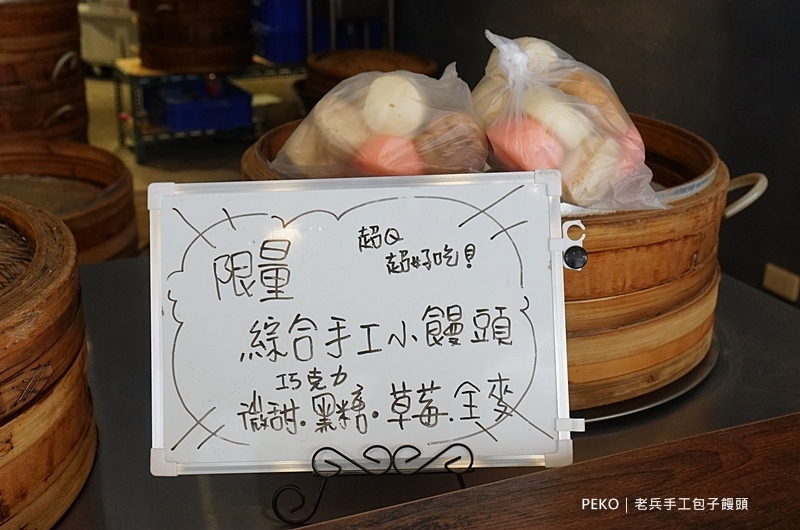 限量
超Q
超好吃!
綜合手工小饅頭
巧克力
微甜.黑糖.草莓.全麥
PEKO | 老兵手工包子饅頭